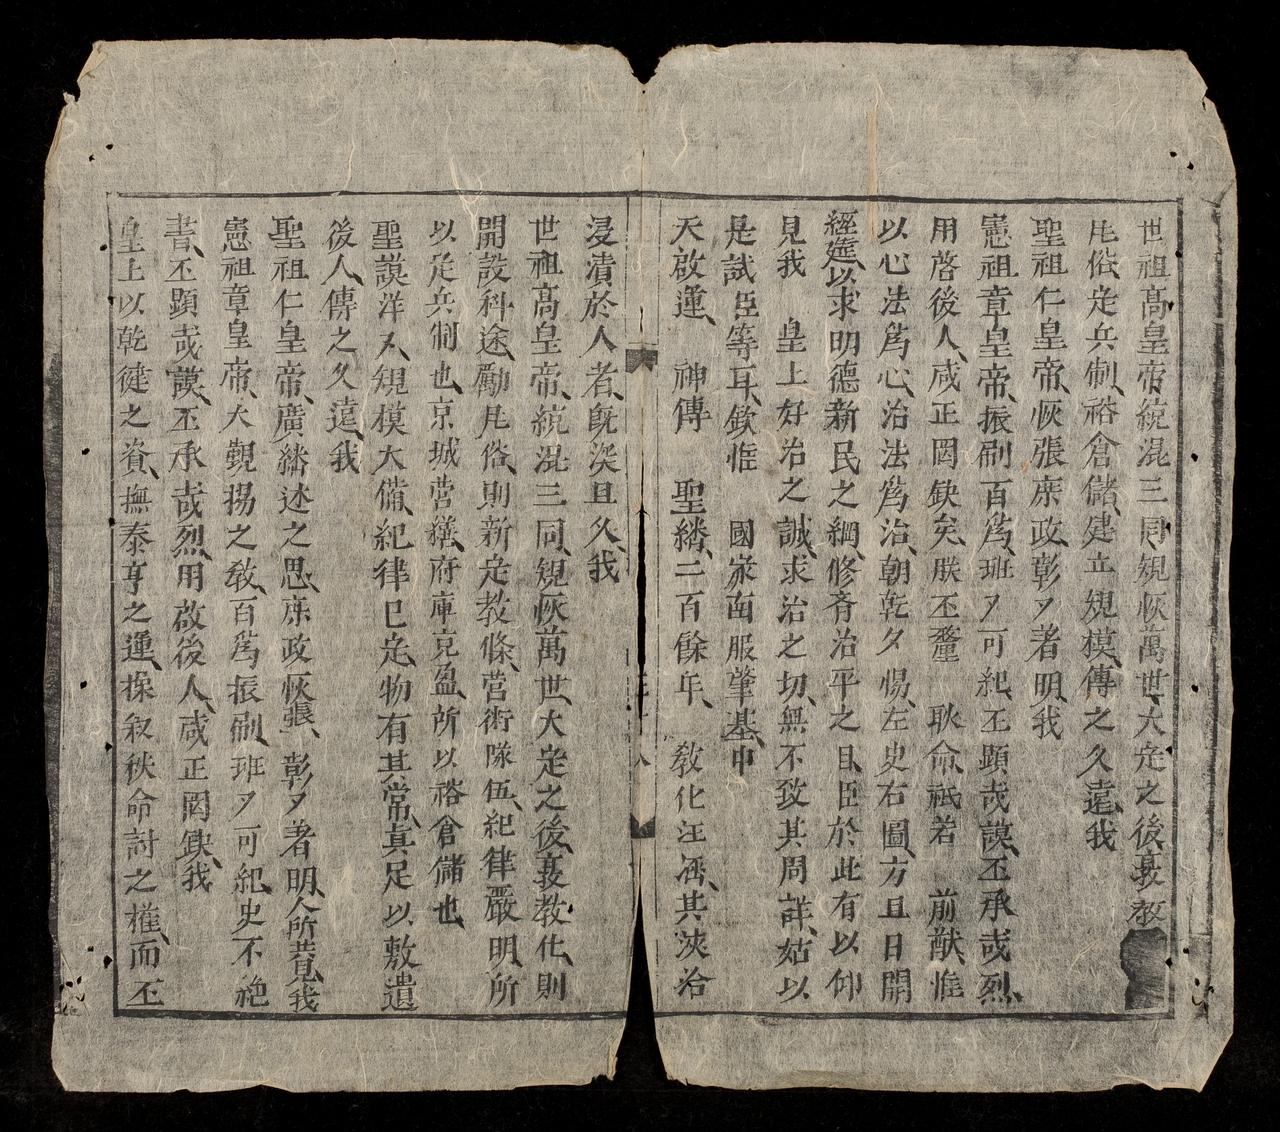 世祖高皇帝統混三同規恢萬世大定之後敦教
凡俗定兵制裕倉儲建立規模傳之久遠我
聖祖仁皇帝恢張庶政彰〻著明我
憲祖章皇帝振刷百爲班〻可紀丕顯哉謨丕承哉烈
用啓後人咸正罔缺矣朕丕釐 耿命祗若 前猷惟
以心法爲心治法爲治朝乾夕惕左史右圖方且日開
經筵以求明德新民之綱修齊治平之目臣於此有以仰
見我 皇上好治之誠求治之切無不致其周詳姑以
是試臣等耳欽惟 國家南服肇基中
天啟運 神傳 聖繼二百餘年 教化汪濊其浹洽
浸漬於人者旣深且久我
世祖高皇帝統混三同規恢萬世大定之後敦教化則
開設科途勵凡俗則新定教條营術隊伍紀律嚴明所
以定兵制也京城营繕府庫充盈所以裕倉儲也
聖謨洋〻規模大備紀律已定物有其常真足以敷遺
後人傳之久遠我
聖祖仁皇帝廣繼述之思庶政恢張彰〻著明人所共見我
憲祖章皇帝大覲揚之教百爲振刷班〻可紀史不絶
書丕顯哉謨丕承哉烈用啟後人咸正罔缺我
皇上以乾健之資撫泰亨之運操叙秩命討之權而丕